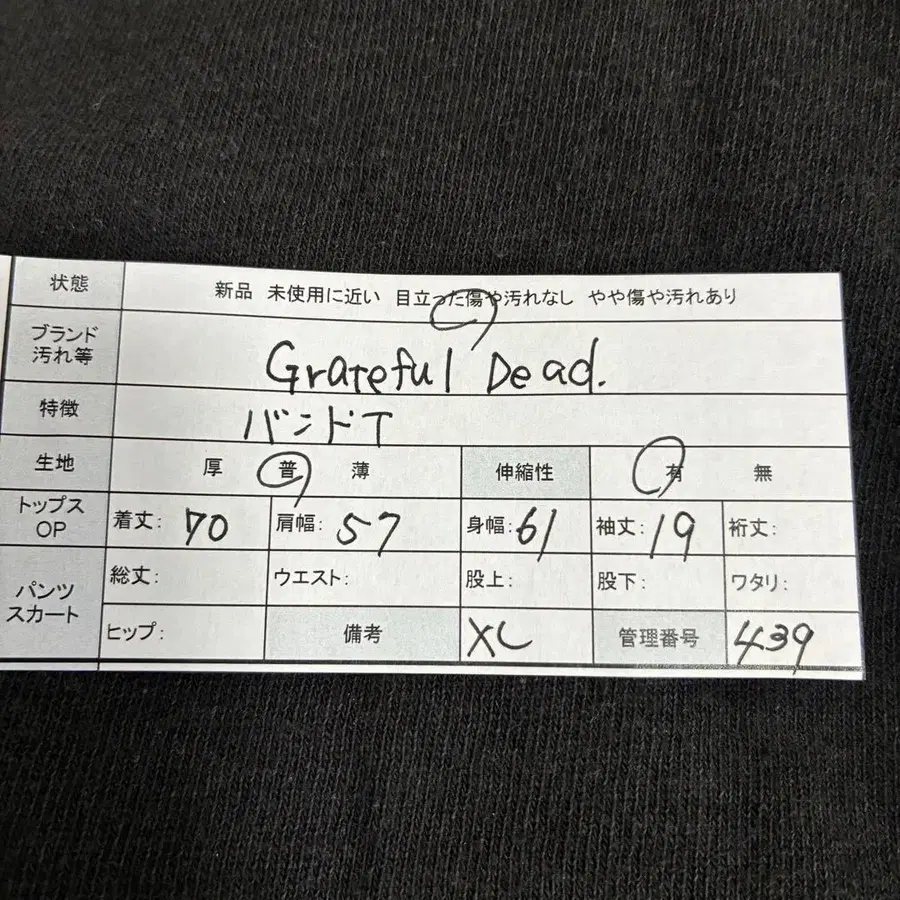 状態 新品 未使用に近い 目立った傷や汚れなし やや傷や汚れあり
ブランド
汚れ等 Grateful Dead.
特徴 バンドT
生地 厚 普 薄 伸縮性 有 無
トップス
OP 着丈: 70 肩幅: 57 身幅: 61 袖丈: 19 裄丈:
パンツ
スカート 総丈: ウエスト: 股上: 股下: ワタリ:
ヒップ: 備考 XL 管理番号 439